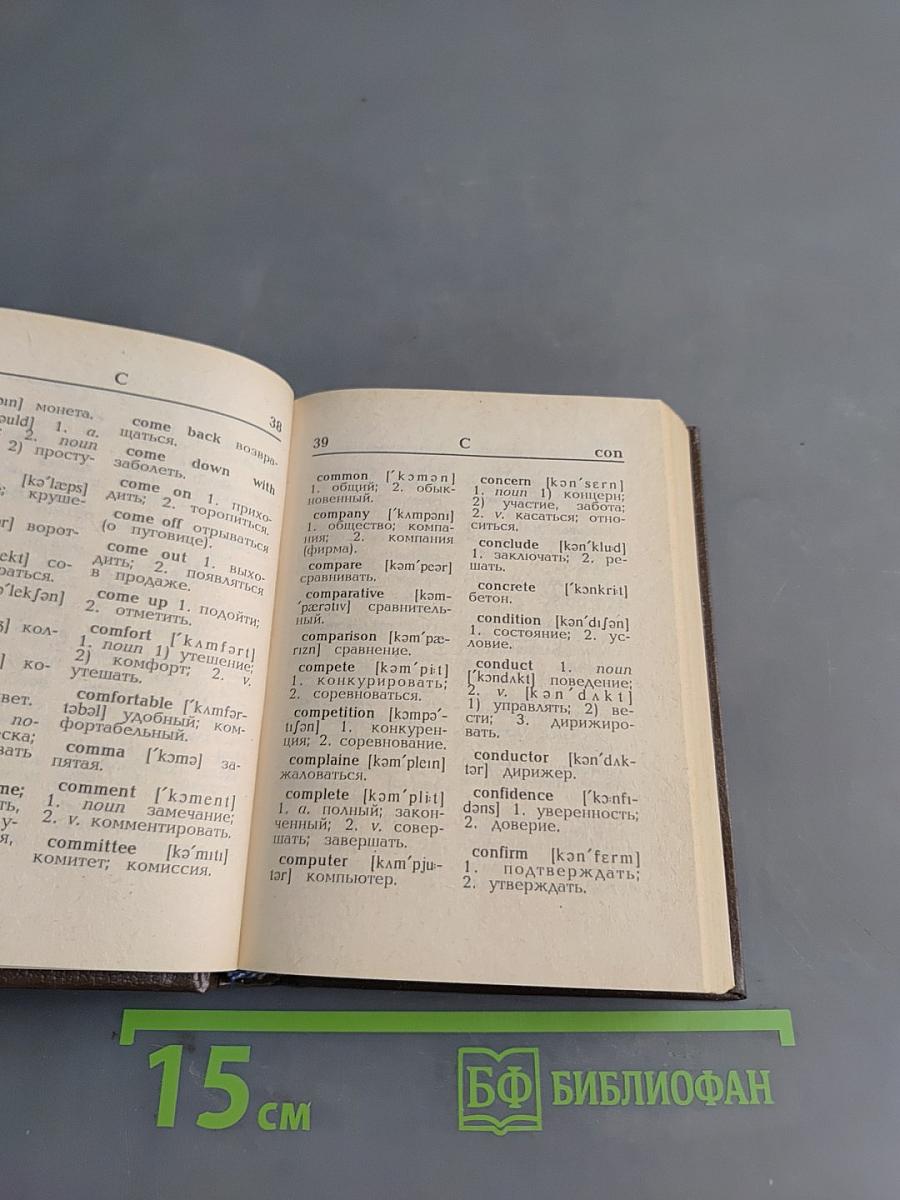 C
38
монета.
1. a.
2. noun
2) просту-
[kə'læps]
круше-
ворот-
со-
кол-
ко-
по-
come back возвра-
щаться.
come down with
заболеть.
come on 1. прихо-
дить; 2. торопиться.
come off отрываться
(о пуговице).
come out 1. выхо-
дить; 2. появляться
в продаже.
come up 1. подойти;
2. отметить.
comfort ['kʌmfərt]
1. noun 1) утешение;
2) комфорт; 2. v.
утешать.
comfortable ['kʌmfər-
təbəl] удобный; ком-
фортабельный.
comma ['kɔmə] за-
пятая.
comment ['kɔment]
1. noun замечание;
2. v. комментировать.
committee [kə'mıtı]
комитет; комиссия.
39
C
con
common ['kɔmən]
1. общий; 2. обык-
новенный.
company ['kʌmpənı]
1. общество; компа-
ния; 2. компания
(фирма).
compare [kəm'pɛər]
сравнивать.
comparative [kəm-
'pærətıv] сравнитель-
ный.
comparison [kəm'pæ-
rızn] сравнение.
compete [kəm'pi:t]
1. конкурировать;
2. соревноваться.
competition [kɔmpə'-
tıʃən] 1. конкурен-
ция; 2. соревнование.
complaine [kəm'pleın]
жаловаться.
complete [kəm'pli:t]
1. a. полный; закон-
ченный; 2. v. совер-
шать; завершать.
computer [kʌm'pju:-
tər] компьютер.
concern [kən'sɛrn]
1. noun 1) концерн;
2) участие, забота;
2. v. касаться; отно-
ситься.
conclude [kən'klu:d]
1. заключать; 2. ре-
шать.
concrete ['kɔnkri:t]
бетон.
condition [kən'dıʃən]
1. состояние; 2. ус-
ловие.
conduct 1. noun
['kɔndʌkt] поведение;
2. v. [kən'dʌkt]
1) управлять; 2) ве-
сти; 3. дирижиро-
вать.
conductor [kən'dʌk-
tər] дирижер.
confidence ['kɔnfı-
dəns] 1. уверенность;
2. доверие.
confirm [kən'fɛrm]
1. подтверждать;
2. утверждать.
15 см
БФ БИБЛИОФАН